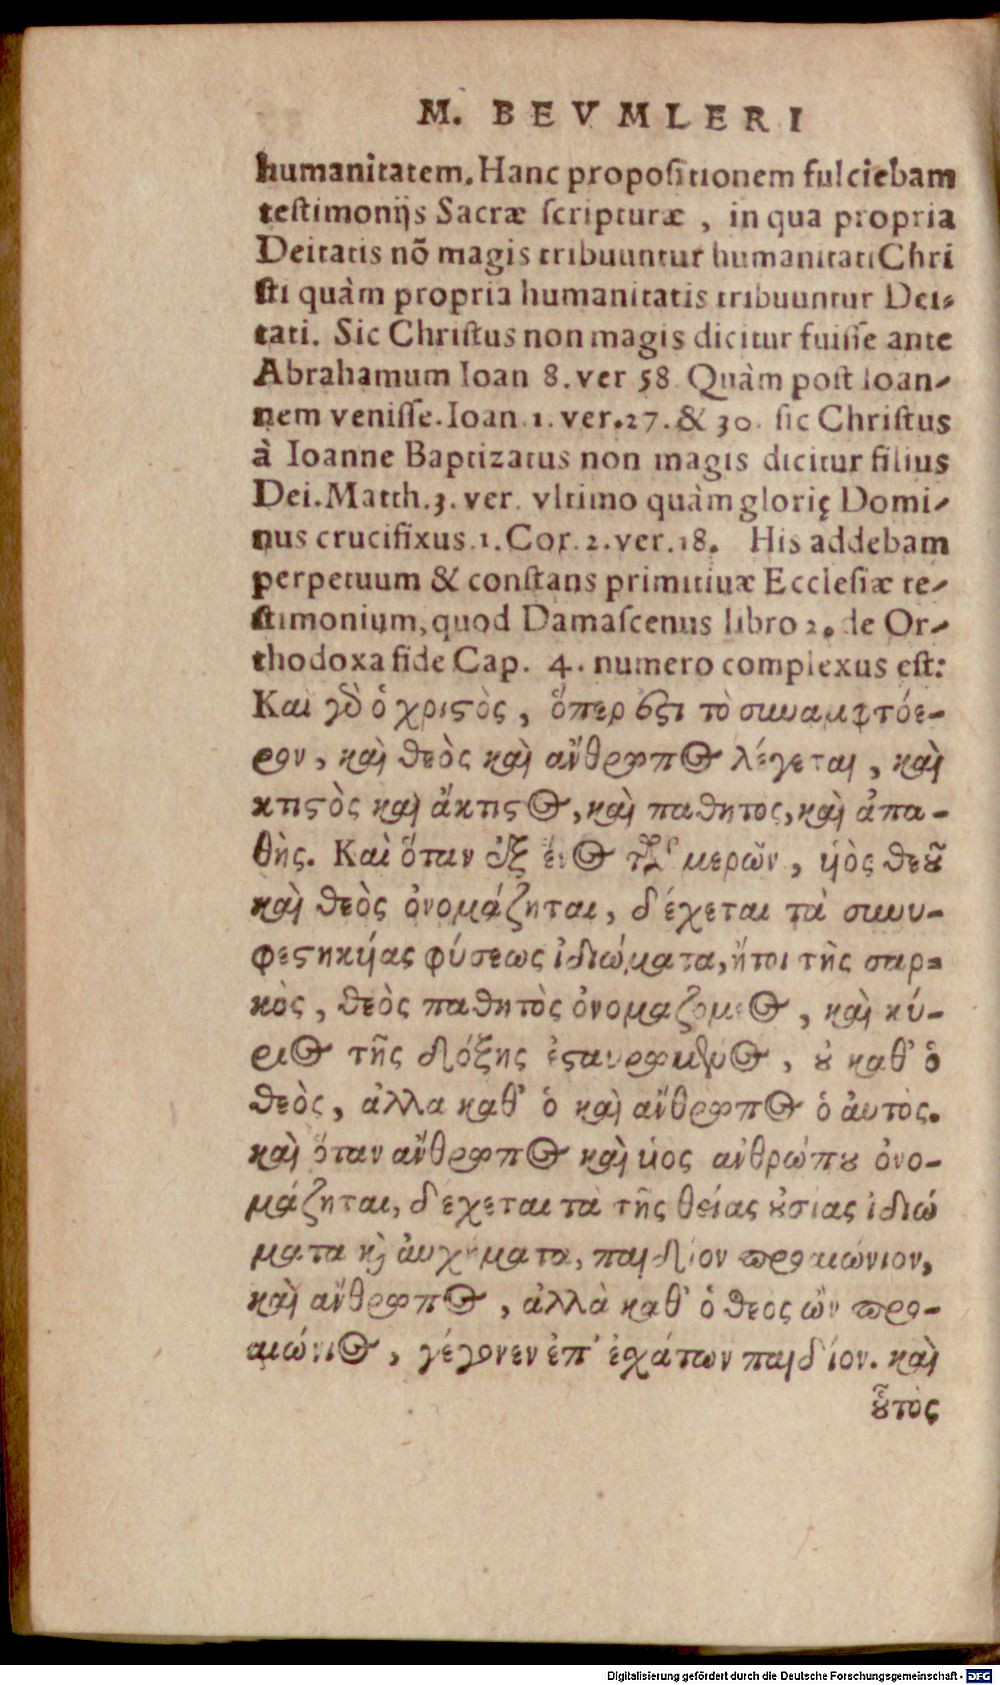 M. BEVMLERI
humanitatem. Hanc propositionem fulciebam
testimonijs Sacræ scripturæ, in qua propria
Deitatis nõ magis tribuuntur humanitati Chri
sti quàm propria humanitatis tribuuntur Dei-
tati. Sic Christus non magis dicitur fuisse ante
Abrahamum Ioan 8. ver 58 Quàm post Ioan-
nem venisse. Ioan. 1. ver. 27. & 30. sic Christus
à Ioanne Baptizatus non magis dicitur filius
Dei. Matth. 3. ver. vltimo quàm glorię Domi-
nus crucifixus. 1. Cor. 2. ver. 18. His addebam
perpetuum & constans primitiuæ Ecclesiæ te-
stimonium, quod Damascenus libro 2. de Or-
thodoxa fide Cap. 4. numero complexus est:
Και γὸ ὁ χριστὸς, ὅπερ ἐστι τὸ συναμφτόε-
ρον, καὶ θεὸς καὶ ἄνθρωπος λέγεται, καὶ
κτιστὸς καὶ ἄκτιστος, καὶ παθητος, καὶ ἀπα-
θὴς. Καὶ ὅταν ἐξ ἑνος τῶν μερῶν, ὑὸς θεοῦ
καὶ θεὸς ὀνομάζηται, δέχεται τὰ συνυ-
φεστηκύας φύσεως ἰδιώματα, ἤτοι τῆς σαρ-
κὸς, θεὸς παθητὸς ὀνομαζομενος, καὶ κύ-
ριος τῆς δόξης ἐσταυρωμένος, οὐ καθ' ὁ
θεὸς, ἀλλα καθ' ὁ καὶ ἄνθρωπος ὁ ἀυτὸς.
καὶ ὅταν ἄνθρωπος καὶ ὑιος ανθρώπου ὀνο-
μάζηται, δέχεται τα τῆς θείας ουσιας ἰδιώ
ματα κὶ ἀυχήματα, παιδίον προαιώνιον,
καὶ ἄνθρωπος, ἀλλὰ καθ' ὁ θεος ὢν προ-
αιώνιος, γέγονεν ἐπ' ἐχάτων παιδίον. καὶ
οὗτὸς
Digitalisierung gefördert durch die Deutsche Forschungsgemeinschaft - DFG